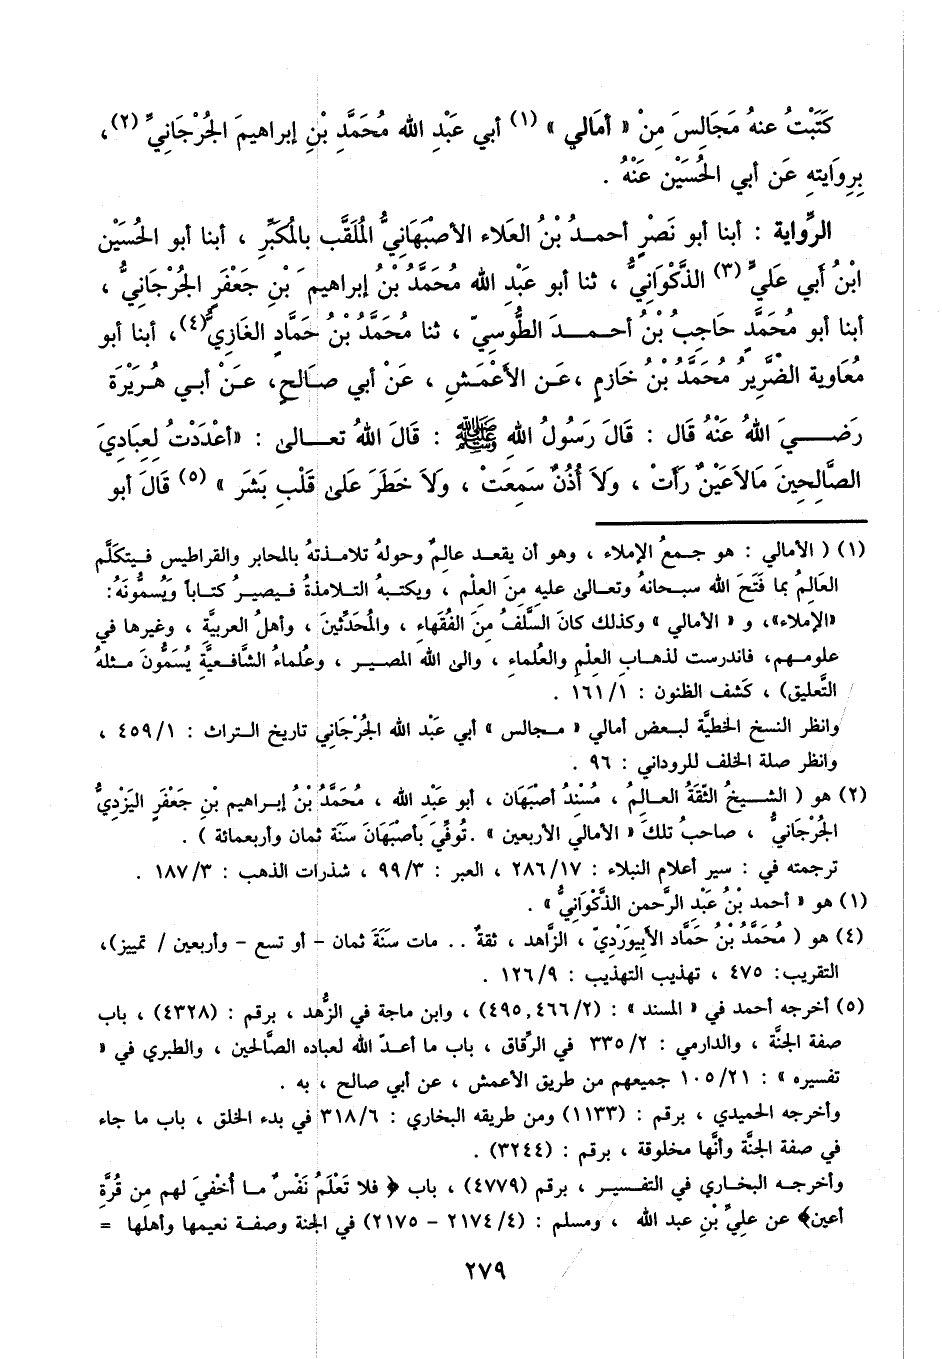 كَتَبْتُ عنهُ مَجَالِسَ مِنْ « أمَالي » (١) أبي عَبْدِ الله مُحَمَّدِ بْنِ إبراهيمَ الجُرْجَانيِّ (٢)،
بِرِوَايتهِ عَن أبي الحُسَيْن عَنْهُ .
الرِّواية : أبنا أبو نَصْرٍ أحمـدُ بْنُ العَلاء الأصْبَهَانيُّ المُلَقَّب بالمُكَبِّرِ ، أبنا أبو الحُسَيْن
ابْنُ أبي عَليٍّ (٣) الذَّكْوَانيُّ ، ثنا أبو عَبْدِ الله مُحَمَّدُ بْنُ إبراهيمَ بْنِ جَعْفَرٍ الجُرْجَانيُّ ،
أبنا أبو مُحَمَّدٍ حَاجِبُ بْنُ أحـمـدَ الطُّوسيّ ، ثنا مُحَمَّدُ بْنُ حَمَّادٍ الغَازِيُّ(٤)، أبنا أبو
مُعَاوية الضَّرِيرُ مُحَمَّدُ بْنُ خَازمٍ ،عَـن الأعْمَشِ ، عَنْ أبي صـَالحٍ، عَـنْ أبـي هُـرَيْرَةَ
رَضـــيَ اللهُ عَنْهُ قَال : قَالَ رَسُولُ اللهِ ﷺ : قَالَ اللهُ تعـــالى : «أعْدَدْتُ لِعِبَادِيَ
الصَّالِحِينَ مَالاَعَيْنٌ رَأتْ ، وَلاَ أُذُنٌ سَمِعَتْ ، وَلاَ خَطَرَ عَلىَ قَلْبِ بَشَرَ » (٥) قَالَ أبو
(١) ( الأمالي : هو جـمعُ الإملاء ، وهو أن يقعـد عالِمٌ وحولهُ تلامـذتهُ بالمحابر والقراطيس فـيتكلَّم
العَالِمُ بما فَتَحَ الله سبحانهُ وتعـالى عليهِ مِنَ العِلْم ، ويكتبـهُ التـلامـذةُ فـيصيـرُ كـتاباً وَيُسمُّونَهُ:
«الإملاء»، و « الأمالي » وكذلك كانَ السَّلَفُ مِنَ الفُقَهاءِ ، والمُحَدِّثينَ ، وأهلُ العربيَّةِ ، وغيرها في
علومـهم، فاندرست لذهـابِ العِلْمِ والعُلماء ، والى الله المصيـر ، وعُلماءُ الشَّافعيَّةِ يُسَمُّونَ مـثلهُ
التَّعليق) ، كَشف الظنون : ١٦١/١ .
وانظر النسخ الخطيَّة لبـعض أمالي « مـجالس » أبي عَبْد الله الجُرْجَاني تاريخ الـتراث : ٤٥٩/١ ،
وانظر صلة الخلف للروداني : ٩٦ .
(٢) هو ( الشـيـخُ الثِّقَةُ العـالِمُ ، مُسْنِدُ أصْبَهَان ، أبو عَبْدِ الله ، مُحَمَّدُ بْنُ إبـراهيم بْنِ جَعْفَرٍ اليَزْدِيُّ
الجُرْجَانيُّ ، صاحبُ تلكَ « الأمالي الأربعين » .تُوفِّيَ بأصْبَهَانَ سَنَة ثمان وأربعمائة ) .
ترجمته في : سير أعلام النبلاء : ٢٨٦/١٧ ، العبر : ٩٩/٣ ، شذرات الذهب : ١٨٧/٣ .
(١) هو « أحمد بْنُ عَبْد الرَّحمن الذَّكْوَانيُّ » .
(٤) هو ( مُحَمَّدُ بْنُ حَمَّاد الأبيوَرْدِيّ ، الزَّاهد ، ثقةٌ .. مات سَنَةَ ثمان – أو تسع – وأربعين / تمييز)،
التقريب: ٤٧٥ ، تهذيب التهذيب : ١٢٦/٩ .
(٥) أخرجه أحمد في « المسند » : (٤٩٥,٤٦٦/٢) ، وابن ماجة في الزُّهد ، برقم : (٤٣٢٨) ، باب
صفة الجنَّة ، والدارمي : ٣٣٥/٢ في الرِّقاق ، باب ما أعدّ الله لعباده الصَّالحين ، والطبري في «
تفسيره » : ١٠٥/٢١ جميعهم من طريق الأعمش ، عن أبي صالح ، به .
وأخرجه الحميدي ، برقم : (١١٣٣) ومن طريقه البخاري : ٣١٨/٦ في بدء الخلق ، باب ما جاء
في صفة الجنَّة وأنَّها مخلوقة ، برقم : (٣٢٤٤) .
وأخرجـه البخـاري في التفـسيـر ، برقم (٤٧٧٩) ، باب ﴿ فلا تَعْلَمُ نَفْسٌ مـا أُخْفيَ لهم مِن قُرَّةِ
أعين﴾ عن عليِّ بْنِ عبد الله ، ومسلم : (٢١٧٤/٤ – ٢١٧٥) في الجنة وصفـة نعيمها وأهلها =
٢٧٩